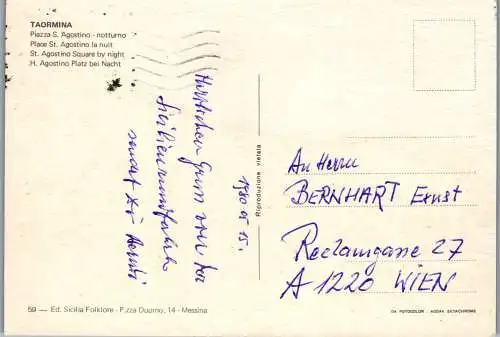 TAORMINA
Piazza S. Agostino - notturno
Place St. Agostino la nuit
St. Agostino Square by night
H. Agostino Platz bei Nacht
1980 05 15.
Herzlichen Gruss von der
Sizilienrundfahrt
sendet
Riproduzione vietata
An Herrn
BERNHART Ernst
Reclamgasse 27
A 1220 WIEN
59 — Ed. Sicilia Folklore - P.zza Duomo, 14 - Messina
DA FOTOCOLOR KODAK EKTACHROME